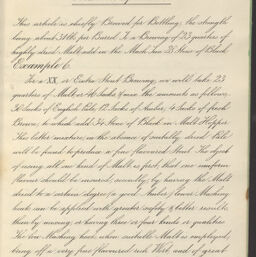 This article is chiefly Brewed for Bottling, the strength
being about 31 lbs. per Barrel. To a Brewing of 23 quarters of
highly dried Malt add in the Mash Tun 28 Stone of Black
Example 6.
For a XX or Extra Stout Brewing, we will take 23
quarters of Malt or 46 Sacks & mix the amounts as follows,
Sacks of English Pale, 12 Sacks of Amber, 4 Sacks of
Brown, to which add 34 Stone of Black in Malt Hopper.
This latter mixture, in the absence of suitably dried Pale
will be found to produce a fine flavoured Stout. The object
of using all one kind of Malt is first, that one uniform
flavour should be insured, secondly, by having the Malt
dried to a certain degree (a good Amber) lower Mashing
heats can be applied with greater safety & better results,
than by using or having three or four kinds or qualities.
The low Mashing heat when suitable Malt is employed,
bring off a very fine flavoured rich Wort, and of great